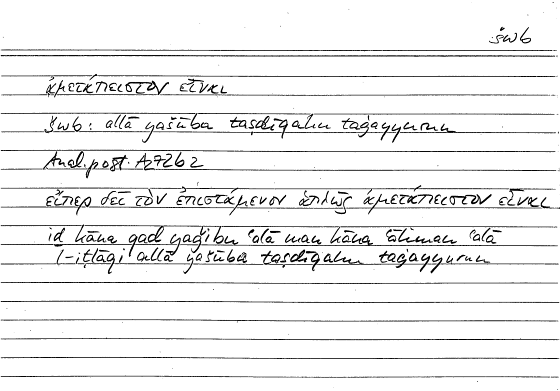 šwb
ἀμετάπειστον εἶναι
šwb: allā yašūba taṣdīqahu taġayyurun
Anal. post. A2 72b2
εἴπερ δεῖ τὸν ἐπιστάμενον ἁπλῶς ἀμετάπειστον εἶναι
iḏ kāna qad yaǧibu ʿalā man kāna ʿāliman ʿalā
l-iṭlāqi allā yašūba taṣdīqahu taġayyurun